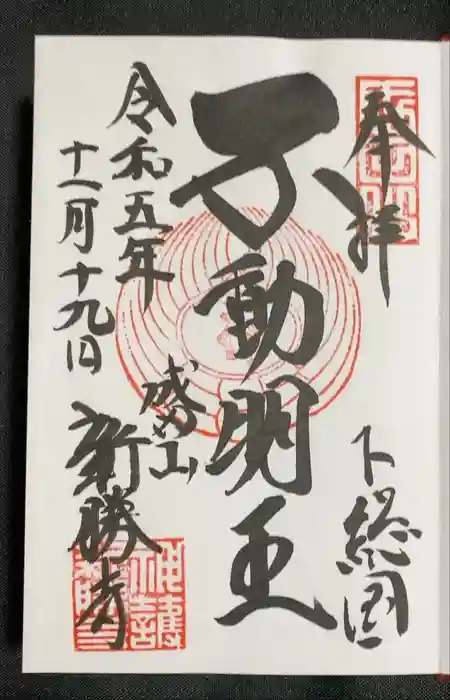 奉拝
下総国
不動明王
盛山
新勝寺
令和五年
十一月十九日